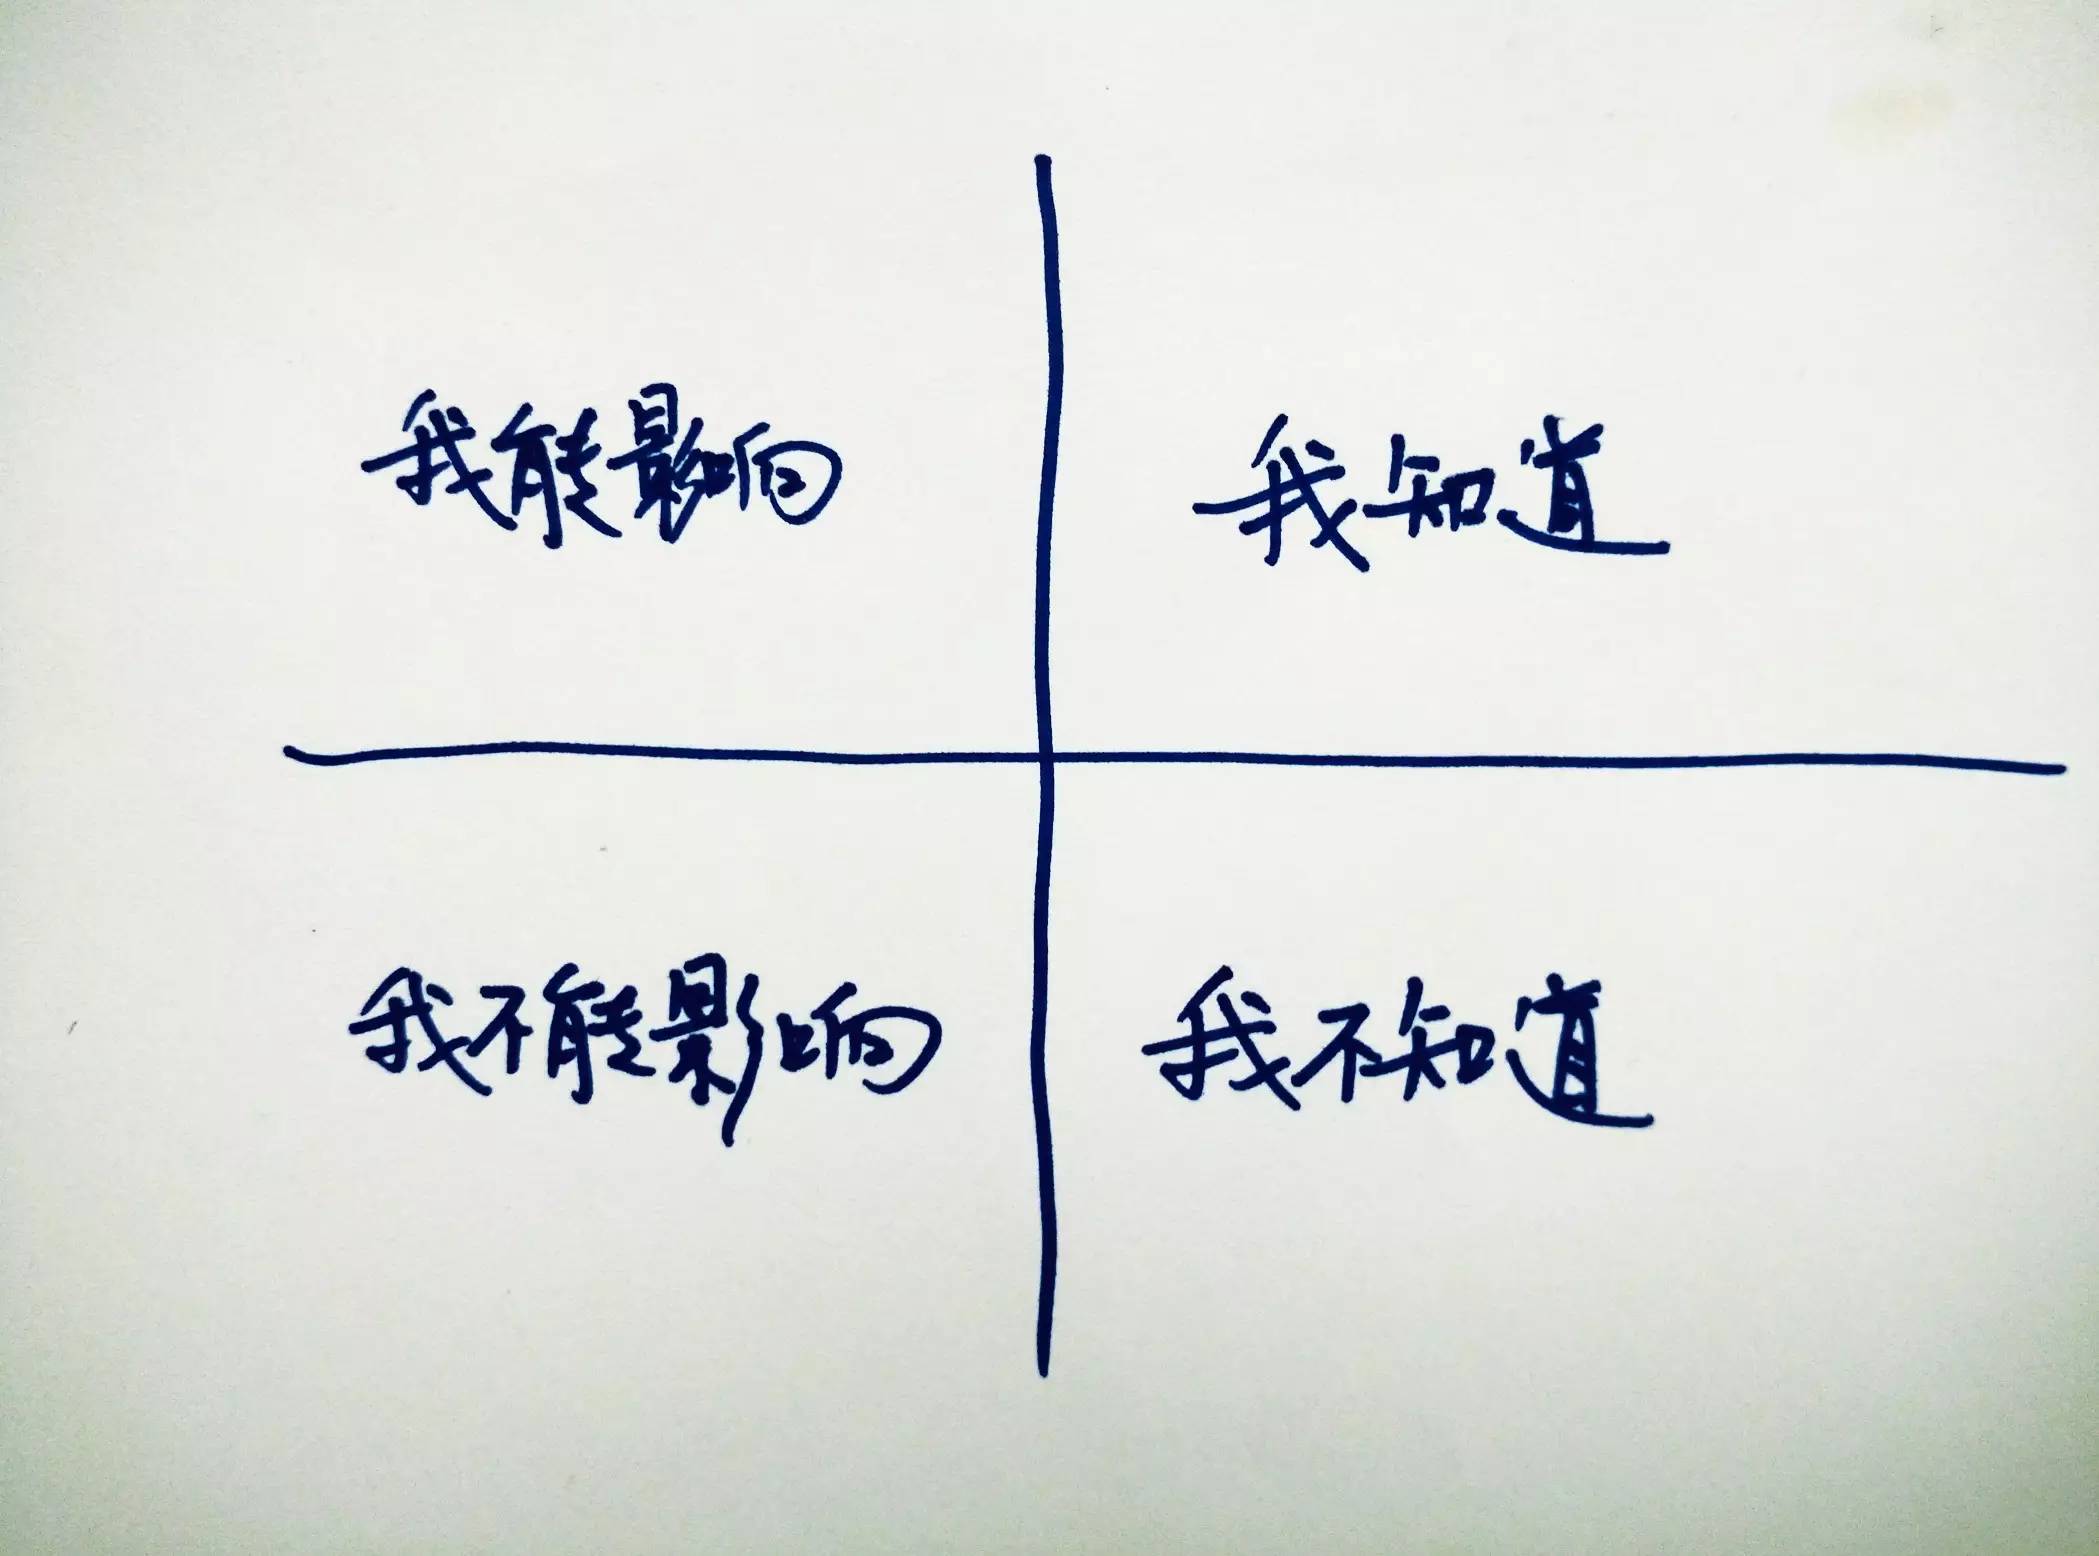 我能影响
我知道
我不能影响
我不知道